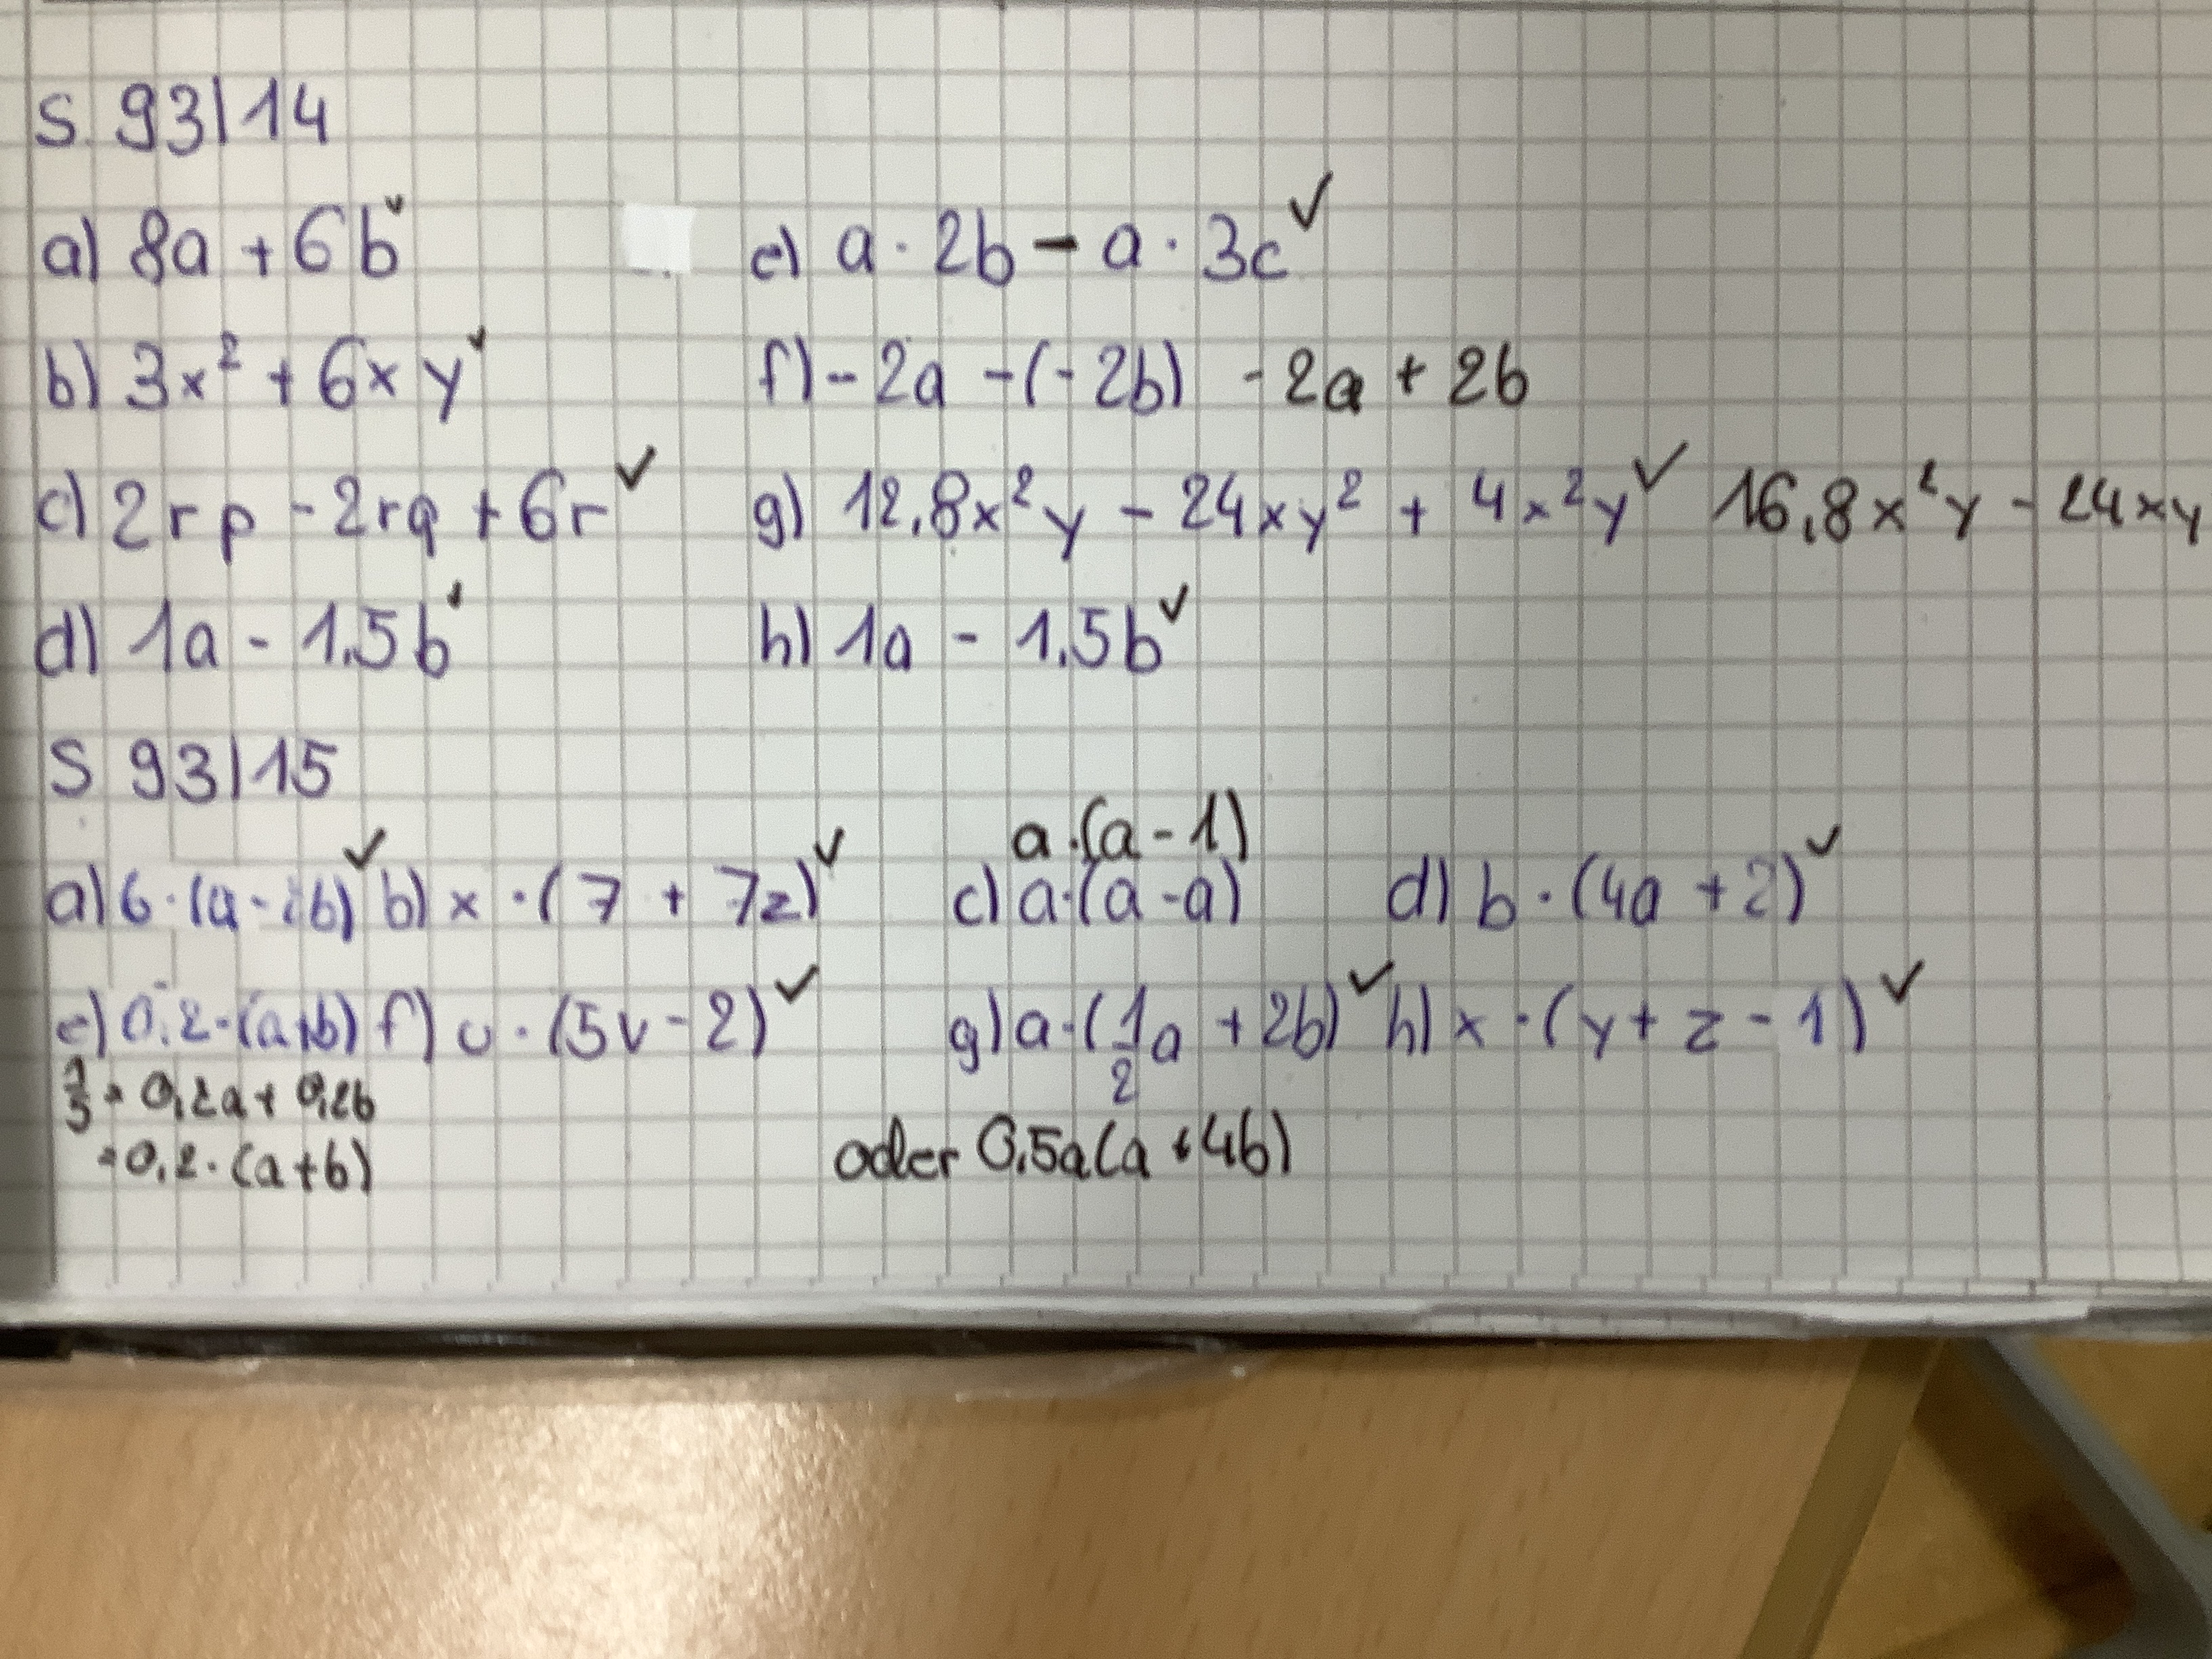 S. 93|14
a) 8a + 6b ✓ e) a · 2b - a · 3c ✓
b) 3x² + 6xy ✓ f) - 2a - (-2b) -2a + 2b
c) 2rp - 2rq + 6r ✓ g) 12,8x²y - 24xy² + 4x²y ✓ 16,8x²y - 24xy
d) 1a - 1,5b ✓ h) 1a - 1,5b ✓
S 93|15
a · (a - 1)
a) 6 · (a - b) ✓ b) x · (7 + 7z) ✓ c) a · (a - a) d) b · (4a + 2) ✓
e) 0,2 · (a+b) f) u · (5v - 2) ✓ g) a · (1/2 a + 2b) ✓ h) x · (y + z - 1) ✓
1/5 = 0,2a + 0,2b
= 0,2 · (a+b) oder 0,5a(a + 4b)